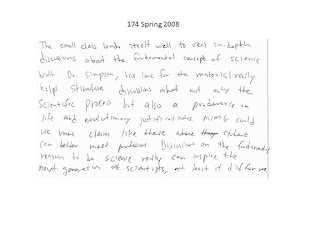 174 Spring 2008
The small class lends itself well to real in-depth
discussions about the fundamental concept of science
with Dr. Simpson, his love for the material really
helps stimulate discussions about not only the
scientific process but also a on
life and evolutionary justifications. could
use more classes like these where students
can better meet professors. Discussion on the fundamental
reason to do science really can inspire the
next generation of scientists, at least it did for me